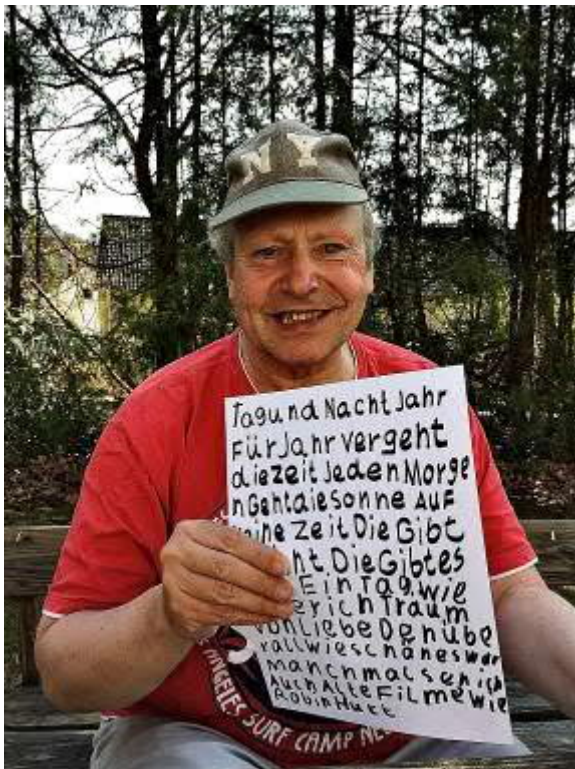 NY
Tag und Nacht Jahr
Für Jahr vergeht
die zeit Jeden Morge
n Geht die sonne AuF
Zeit Die Gibt
Die Gibtes
Ein Tag. wie
er ich Traum
von Liebe Den übe
rall wie schönes war
manchmal seh ich
Auch Alte Filme wie
Robin Hutt
ANGELES SURF CAMP